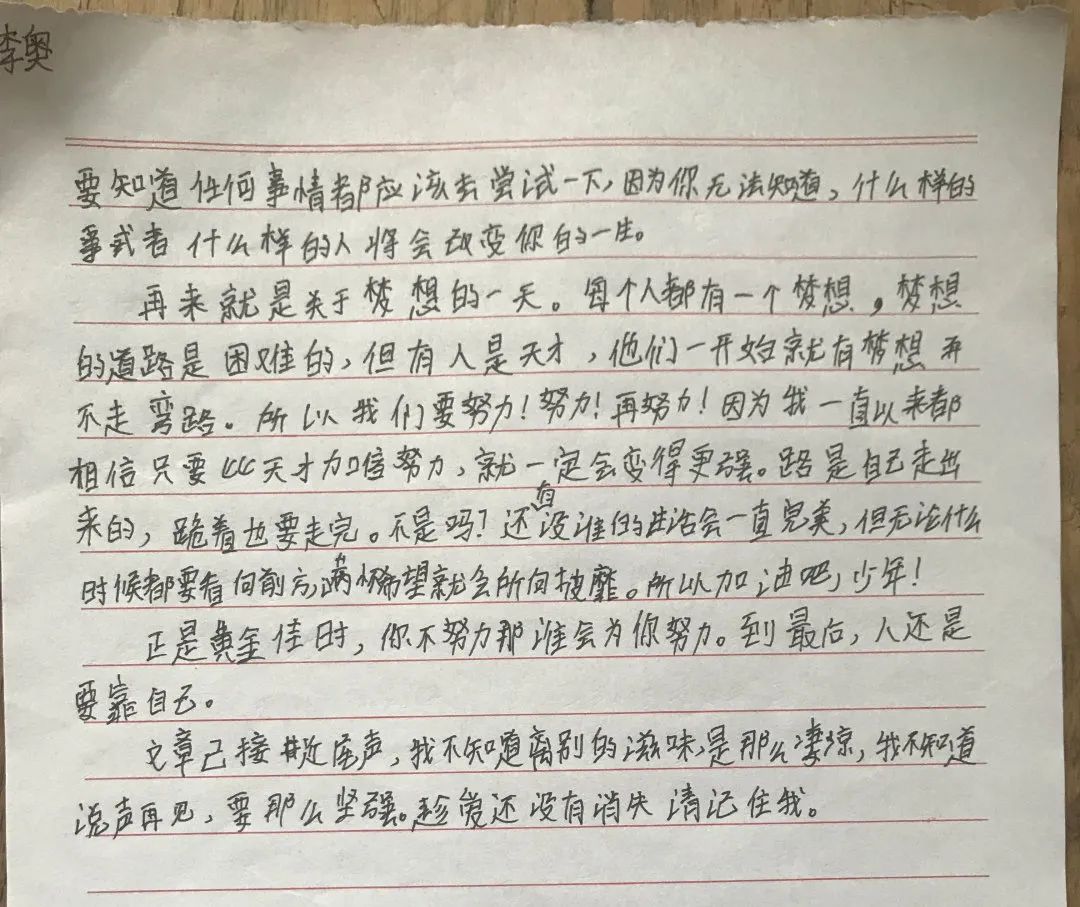 李奥
要知道任何事情都应该去尝试一下,因为你无法知道,什么样的
事或者什么样的人将会改变你的一生。
再来就是关于梦想的一天。每个人都有一个梦想,梦想
的道路是困难的,但有人是天才,他们一开始就有梦想并
不走弯路。所以我们要努力!努力!再努力!因为我一直以来都
相信只要“天才加倍努力,就一定会变得更强。路是自己走出
来的,跪着也要走完。不是吗?还没有谁的生活会一直完美,但无论什么
时候都要看向前方,满怀希望就会所向披靡。所以加油吧,少年!
正是黄金佳时,你不努力那谁会为你努力。到最后,人还是
要靠自己。
文章已接近尾声,我不知道离别的滋味是那么凄凉,我不知道
说声再见,要那么坚强。趁爱还没有消失 请记住我。